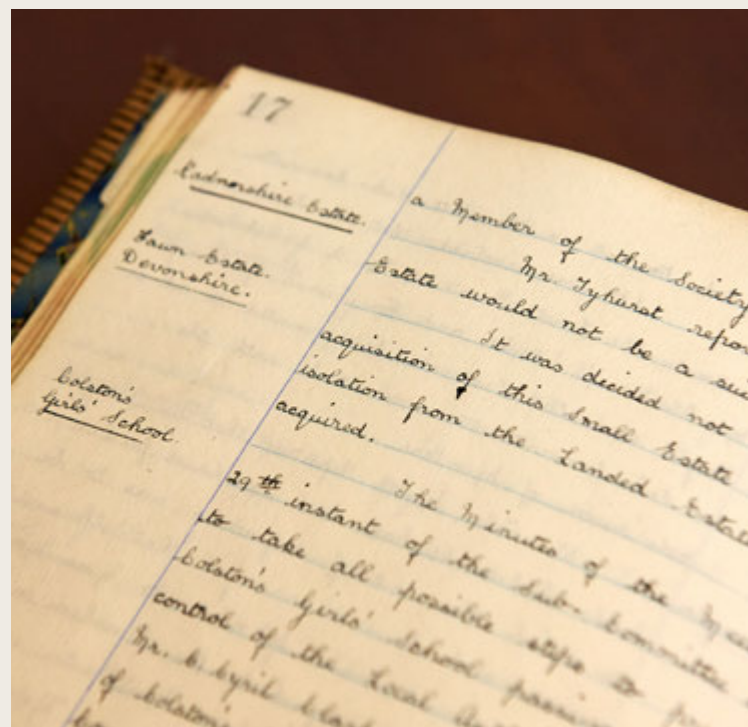 17
Radnorshire Estate.
Fawn Estate.
Devonshire.
Colston's
Girls' School.
a Member of the Society
Mr. Tyhurst repor
Estate would not be a suc
It was decided not
acquisition of this Small Estate
isolation from the Landed Estate
acquired.
The Minutes of the Mee
29th instant of the Sub-Committee
to take all possible steps to
Colston's Girls' School passi
control of the Local
Mr. C. Cyril
of Colston's